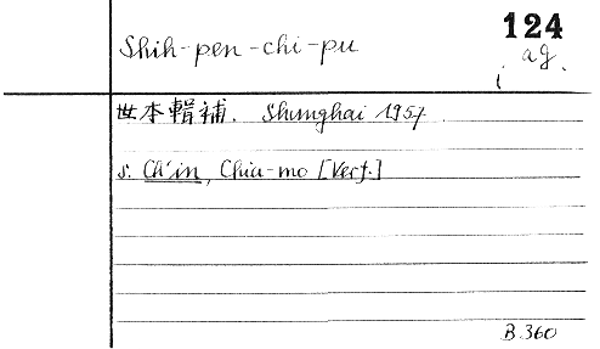 124
Shih-pen-chi-pu
ag.
i
世本輯補. Shanghai 1957.
s. Ch'in, Chia-mo [Verf.]
B.360